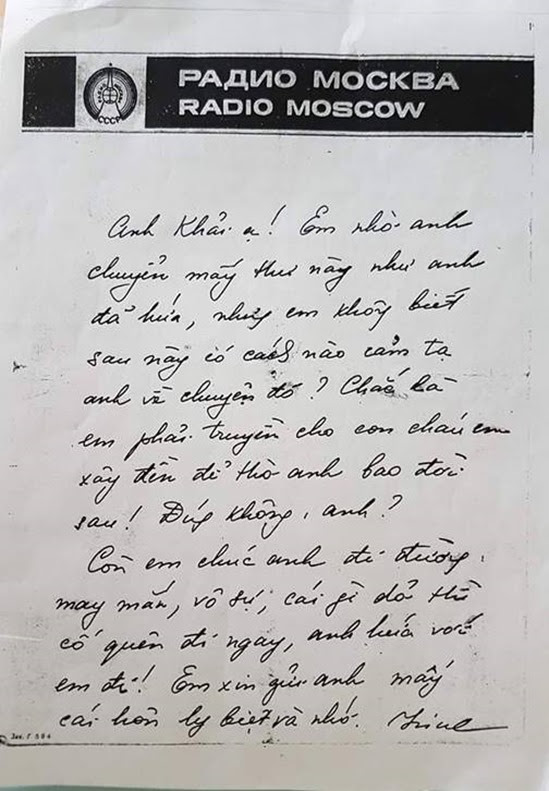 РАДИО МОСКВА
RADIO MOSCOW
СССР
Anh Khải ạ! Em nhờ anh
chuyển mấy thư này như anh
đã hứa, nhưng em không biết
sau này có cách nào cảm tạ
anh về chuyện đó? Chắc là
em phải truyền cho con cháu em
xây đền để thờ anh bao đời
sau! Đúng không, anh?
Còn em chúc anh đi đường
may mắn, vô sự, cái gì dở thì
cố quên đi ngay, anh hứa với
em đi! Em xin gửi anh mấy
cái hôn ly biệt và nhớ.
Зак. Г 584